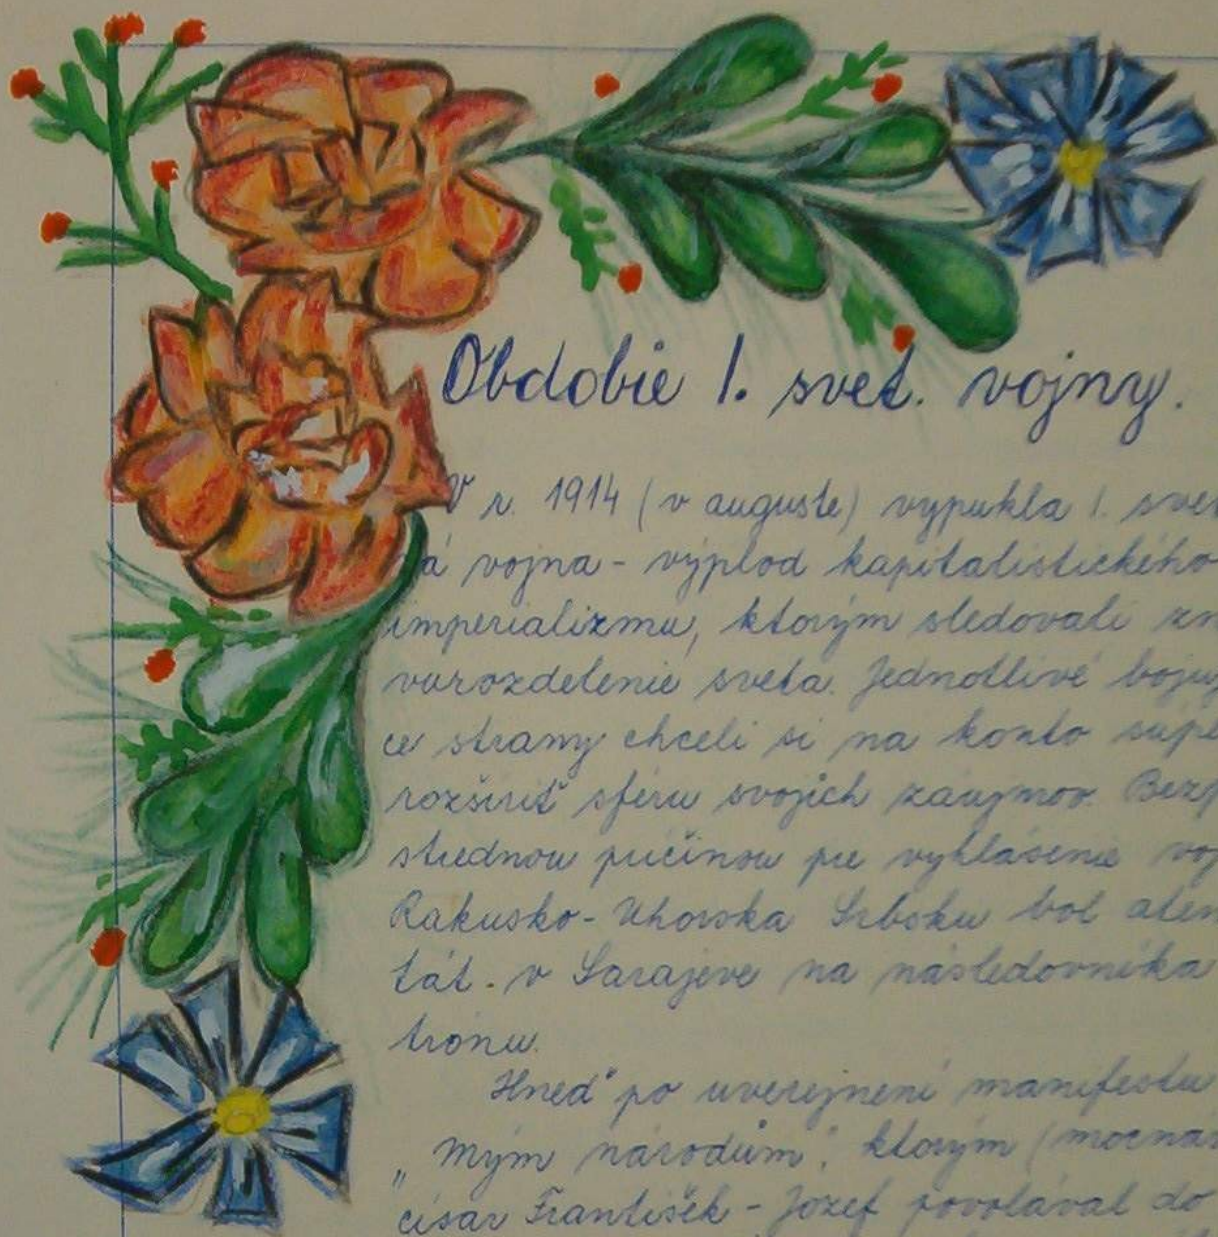 Obdobie 1. svet. vojny.
V r. 1914 (v auguste) vypukla 1. svet
á vojna - výplod kapitalistického
imperializmu, ktorým sledovali zn
vurozdelenie sveta. Jednotlivé bojuj
ce strany chceli si na konto súpe
rozšíriť sféru svojich záujmov. Bezp
strednou príčinou pre vyhlásenie voj
Rakusko-Uhorska Srbsku bol aten
tát. v Sarajeve na následovníka
trónu.
Hneď po uverejnení manifestu
„Mým národům", ktorým (mocnár
císar František-Jozef povolával do